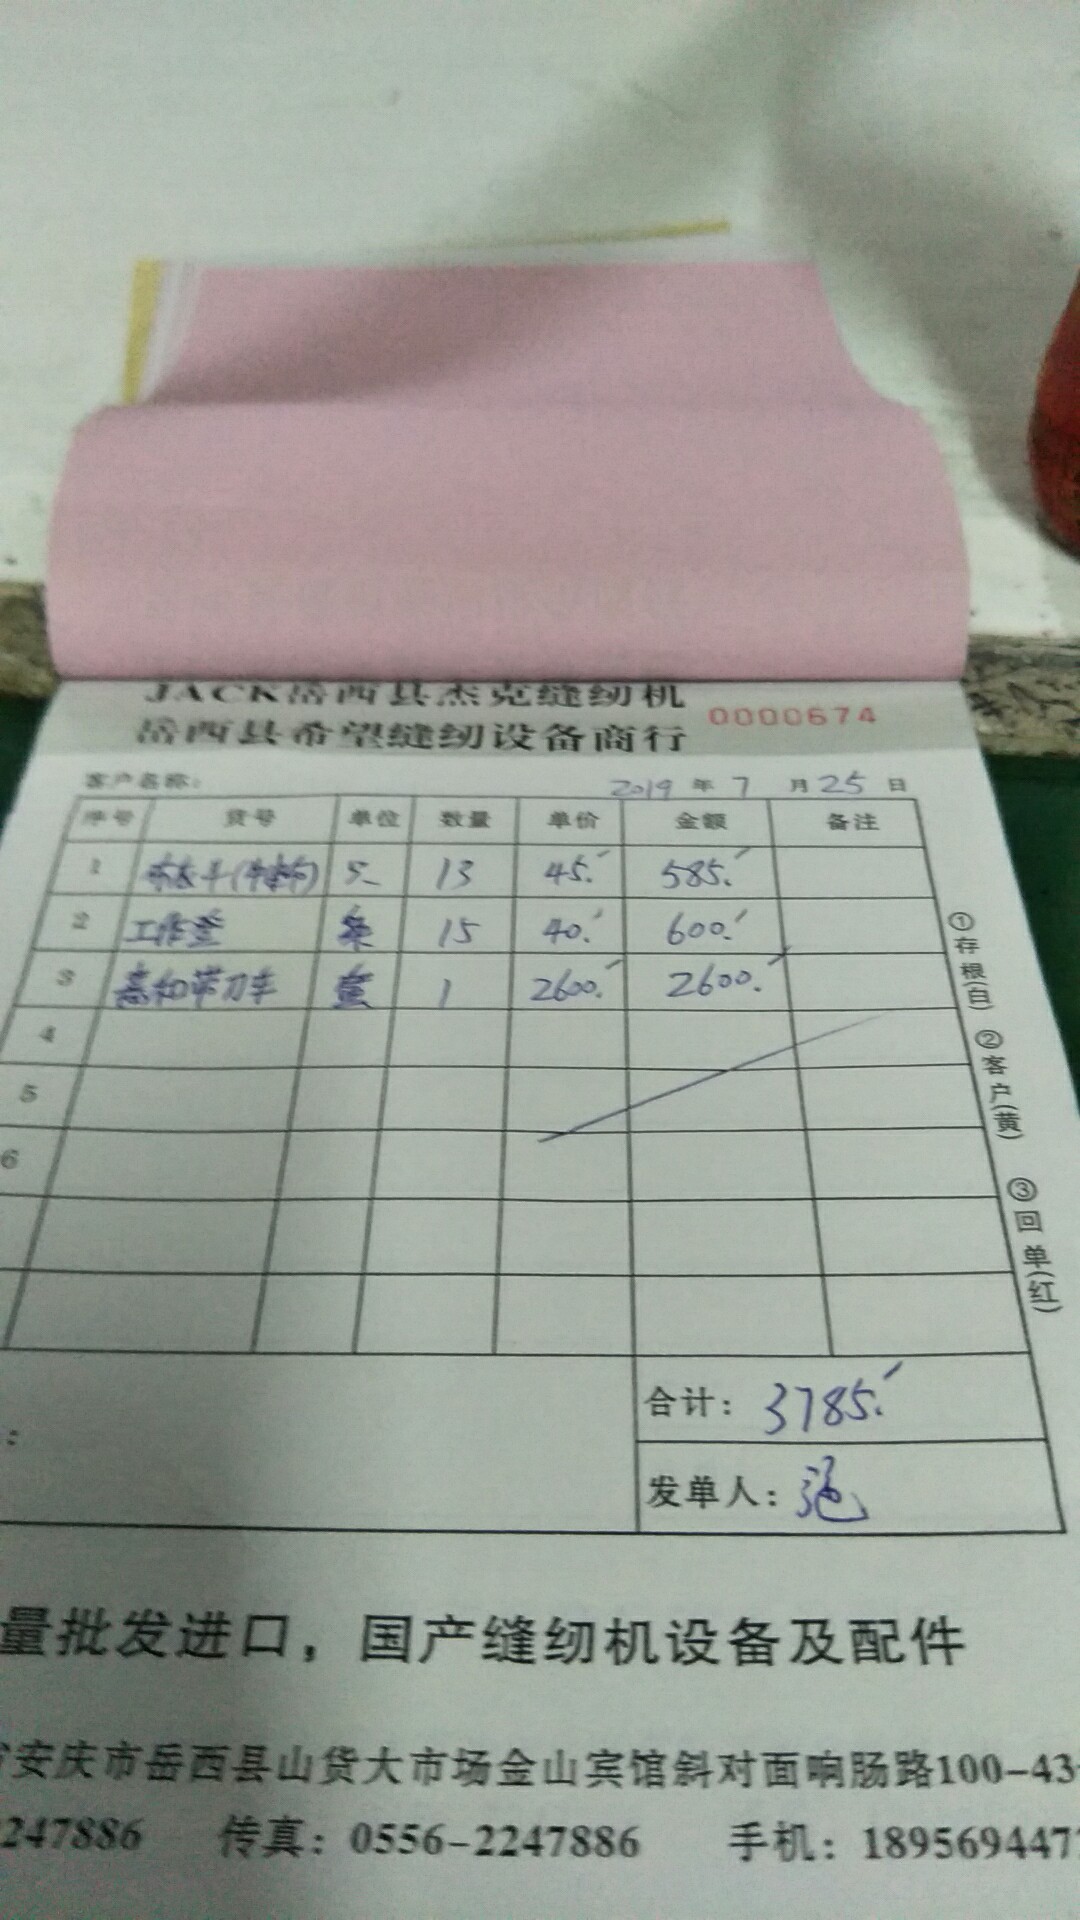 JACK岳西县杰克缝纫机
岳西县希望缝纫设备商行 0000674
客户名称： 2019 年 7 月 25 日
序号 货号 单位 数量 单价 金额 备注
1 13 45. 585.
2 工作登 15 40. 600.
3 带刀车 1 2600. 2600.
4
5
6
①存根(白) ②客户(黄) ③回单(红)
合计： 3785.
： 发单人：
量批发进口，国产缝纫机设备及配件
安庆市岳西县山货大市场金山宾馆斜对面响肠路100-43
2247886 传真：0556-2247886 手机：1895694477